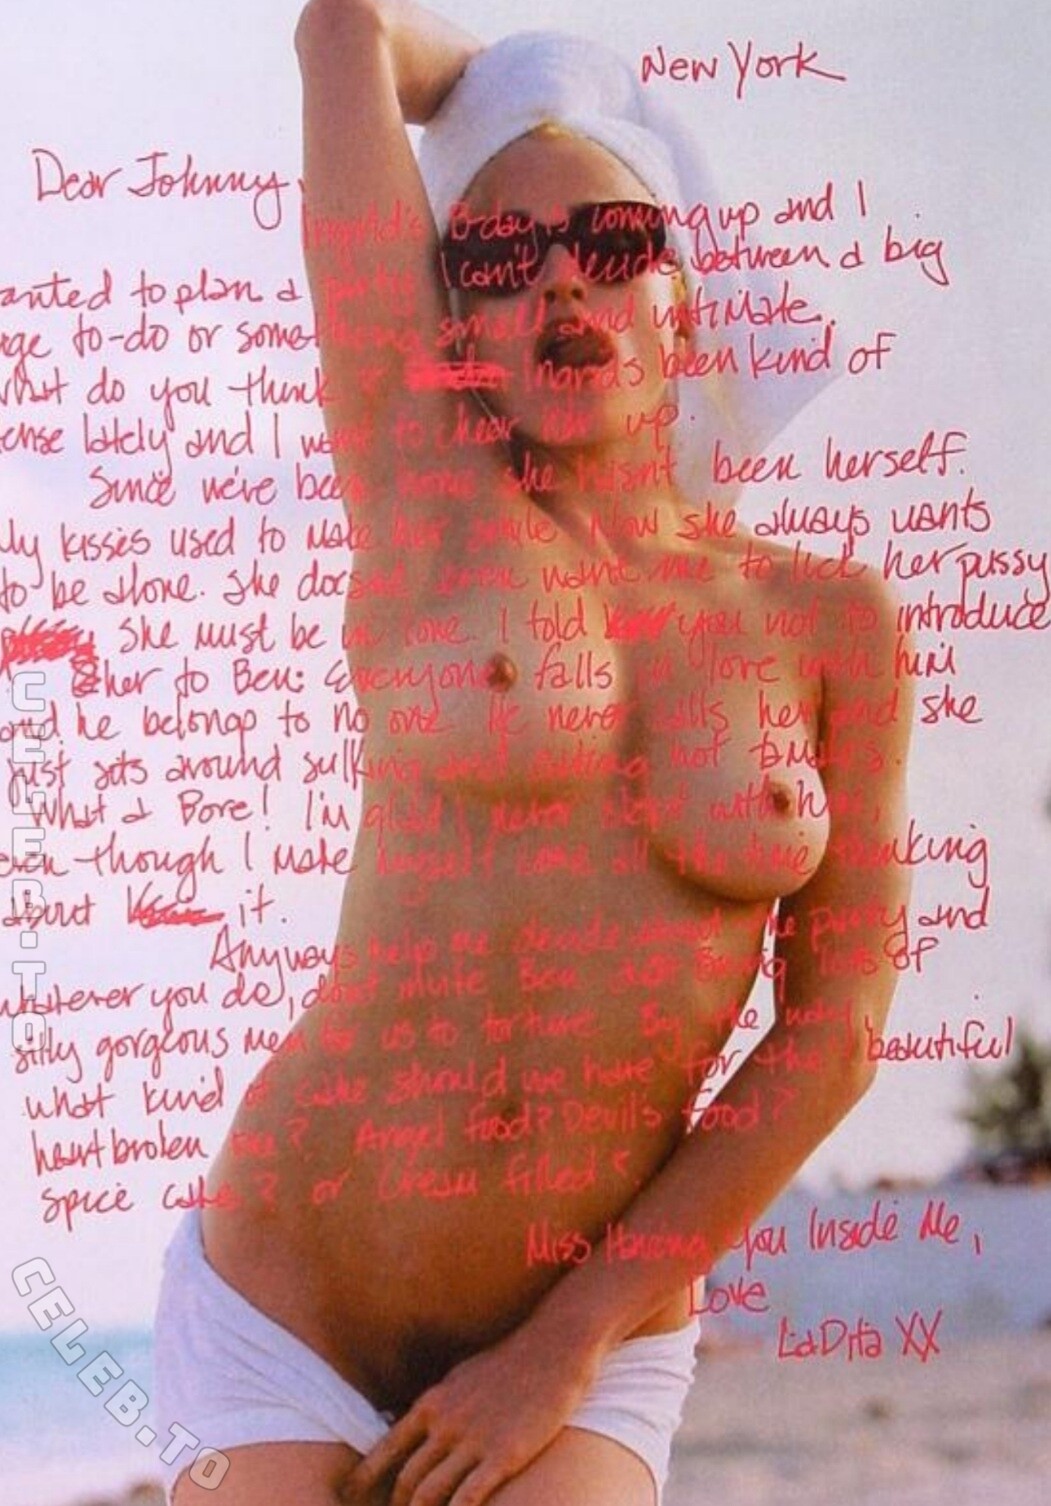 New York
Dear Johnny,
Ingrid's B-day is coming up and I
anted to plan a party I can't decide between a big
ge to-do or something small and intimate.
what do you think? Ingrid's been kind of
ense lately and I want to cheer her up.
Since we've been home she hasn't been herself.
My kisses used to make her smile Now she always wants
to be alone. She doesn't even want me to lick her pussy
She must be in love I told you not to introduce
her to Ben: Everyone falls in love with him
and he belongs to no one He never calls her and she
just sits around sulking and eating hot tamales.
What a Bore! I'm glad I never slept with him,
even though I make myself come all the time thinking
about it.
Anyways help me decide about the party and
whatever you do, don't invite Ben Bring lots of
silly gorgeous men for us to torture By the way,
what kind of cake should we have for the beautiful
heartbroken one? Angel food? Devil's food?
Spice cake? or Cream filled?
Miss Having You Inside Me,
Love
LaDita XX
CELEB.TO
CELEB.TO